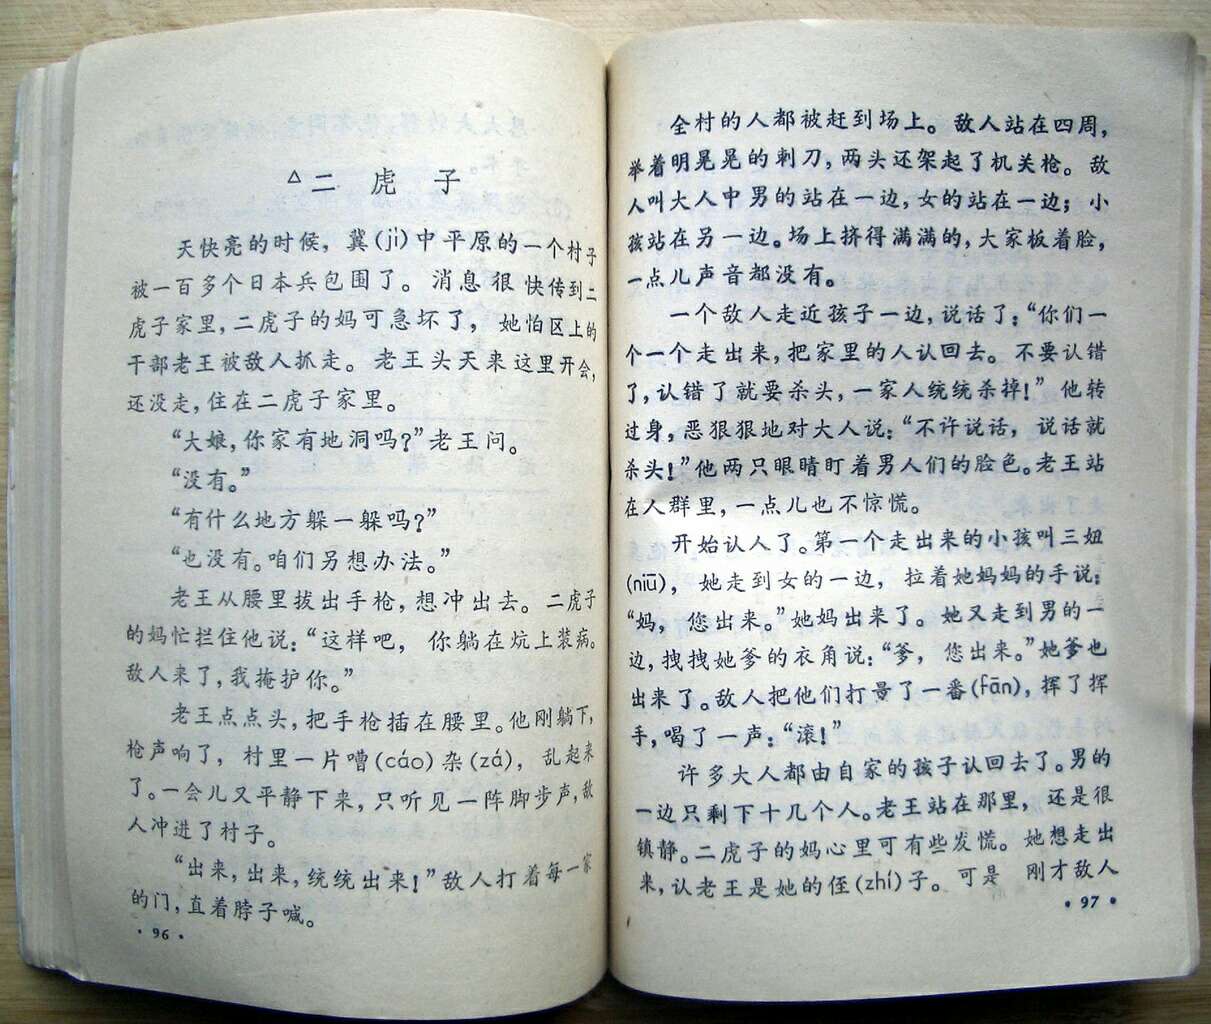 △二 虎 子
天快亮的时候，冀(jì)中平原的一个村子
被一百多个日本兵包围了。消息很快传到二
虎子家里，二虎子的妈可急坏了，她怕区上的
干部老王被敌人抓走。老王头天来这里开会，
还没走，住在二虎子家里。
“大娘，你家有地洞吗？”老王问。
“没有。”
“有什么地方躲一躲吗？”
“也没有。咱们另想办法。”
老王从腰里拔出手枪，想冲出去。二虎子
的妈忙拦住他说：“这样吧，你躺在炕上装病。
敌人来了，我掩护你。”
老王点点头，把手枪插在腰里。他刚躺下，
枪声响了，村里一片嘈(cáo)杂(zá)，乱起来
了。一会儿又平静下来，只听见一阵脚步声，敌
人冲进了村子。
“出来，出来，统统出来！”敌人打着每一家
的门，直着脖子喊。
• 96 •
全村的人都被赶到场上。敌人站在四周，
举着明晃晃的刺刀，两头还架起了机关枪。敌
人叫大人中男的站在一边，女的站在一边；小
孩站在另一边。场上挤得满满的，大家板着脸，
一点儿声音都没有。
一个敌人走近孩子一边，说话了：“你们一
个一个走出来，把家里的人认回去。不要认错
了，认错了就要杀头，一家人统统杀掉！”他转
过身，恶狠狠地对大人说：“不许说话，说话就
杀头！”他两只眼睛盯着男人们的脸色。老王站
在人群里，一点儿也不惊慌。
开始认人了。第一个走出来的小孩叫三妞
(niū)，她走到女的一边，拉着她妈妈的手说：
“妈，您出来。”她妈出来了。她又走到男的一
边，拽拽她爹的衣角说：“爹，您出来。”她爹也
出来了。敌人把他们打量了一番(fān)，挥了挥
手，喝了一声：“滚！”
许多大人都由自家的孩子认回去了。男的
一边只剩下十几个人。老王站在那里，还是很
镇静。二虎子的妈心里可有些发慌。她想走出
来，认老王是她的侄(zhí)子。可是 刚才敌人
• 97 •